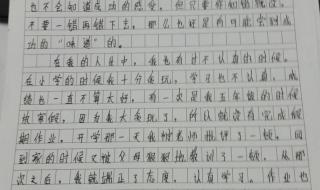 也不会知道成功的感受，但只要你知错就改，
不要一错再错下去，那么也还是有可能会尝到成
功的“味道”的。
在我的人生中，我也有过不认真的时候。
在小学的时候我十分贪玩，学习也不认真，成
绩也一直不算太好，有一次是我五年级的时候
放寒假，因为我太贪玩了，所以就没有完成假
期作业。开学那天我被老师批评了一顿。回
到家的时候又被父母狠狠地教训了一顿，从那
次之后，我就端正了态度，认真学习，作业也